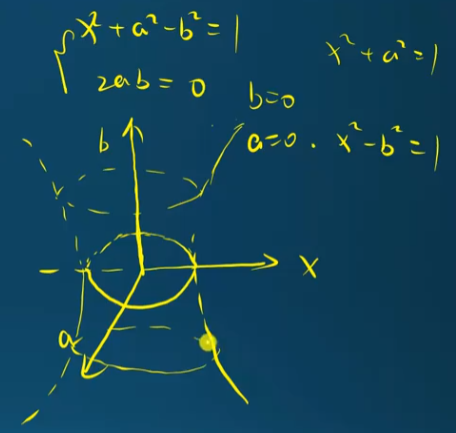 x² + a² - b² = 1
2ab = 0
x² + a² = 1
b=0
a=0 . x² - b² = 1
b
x
a